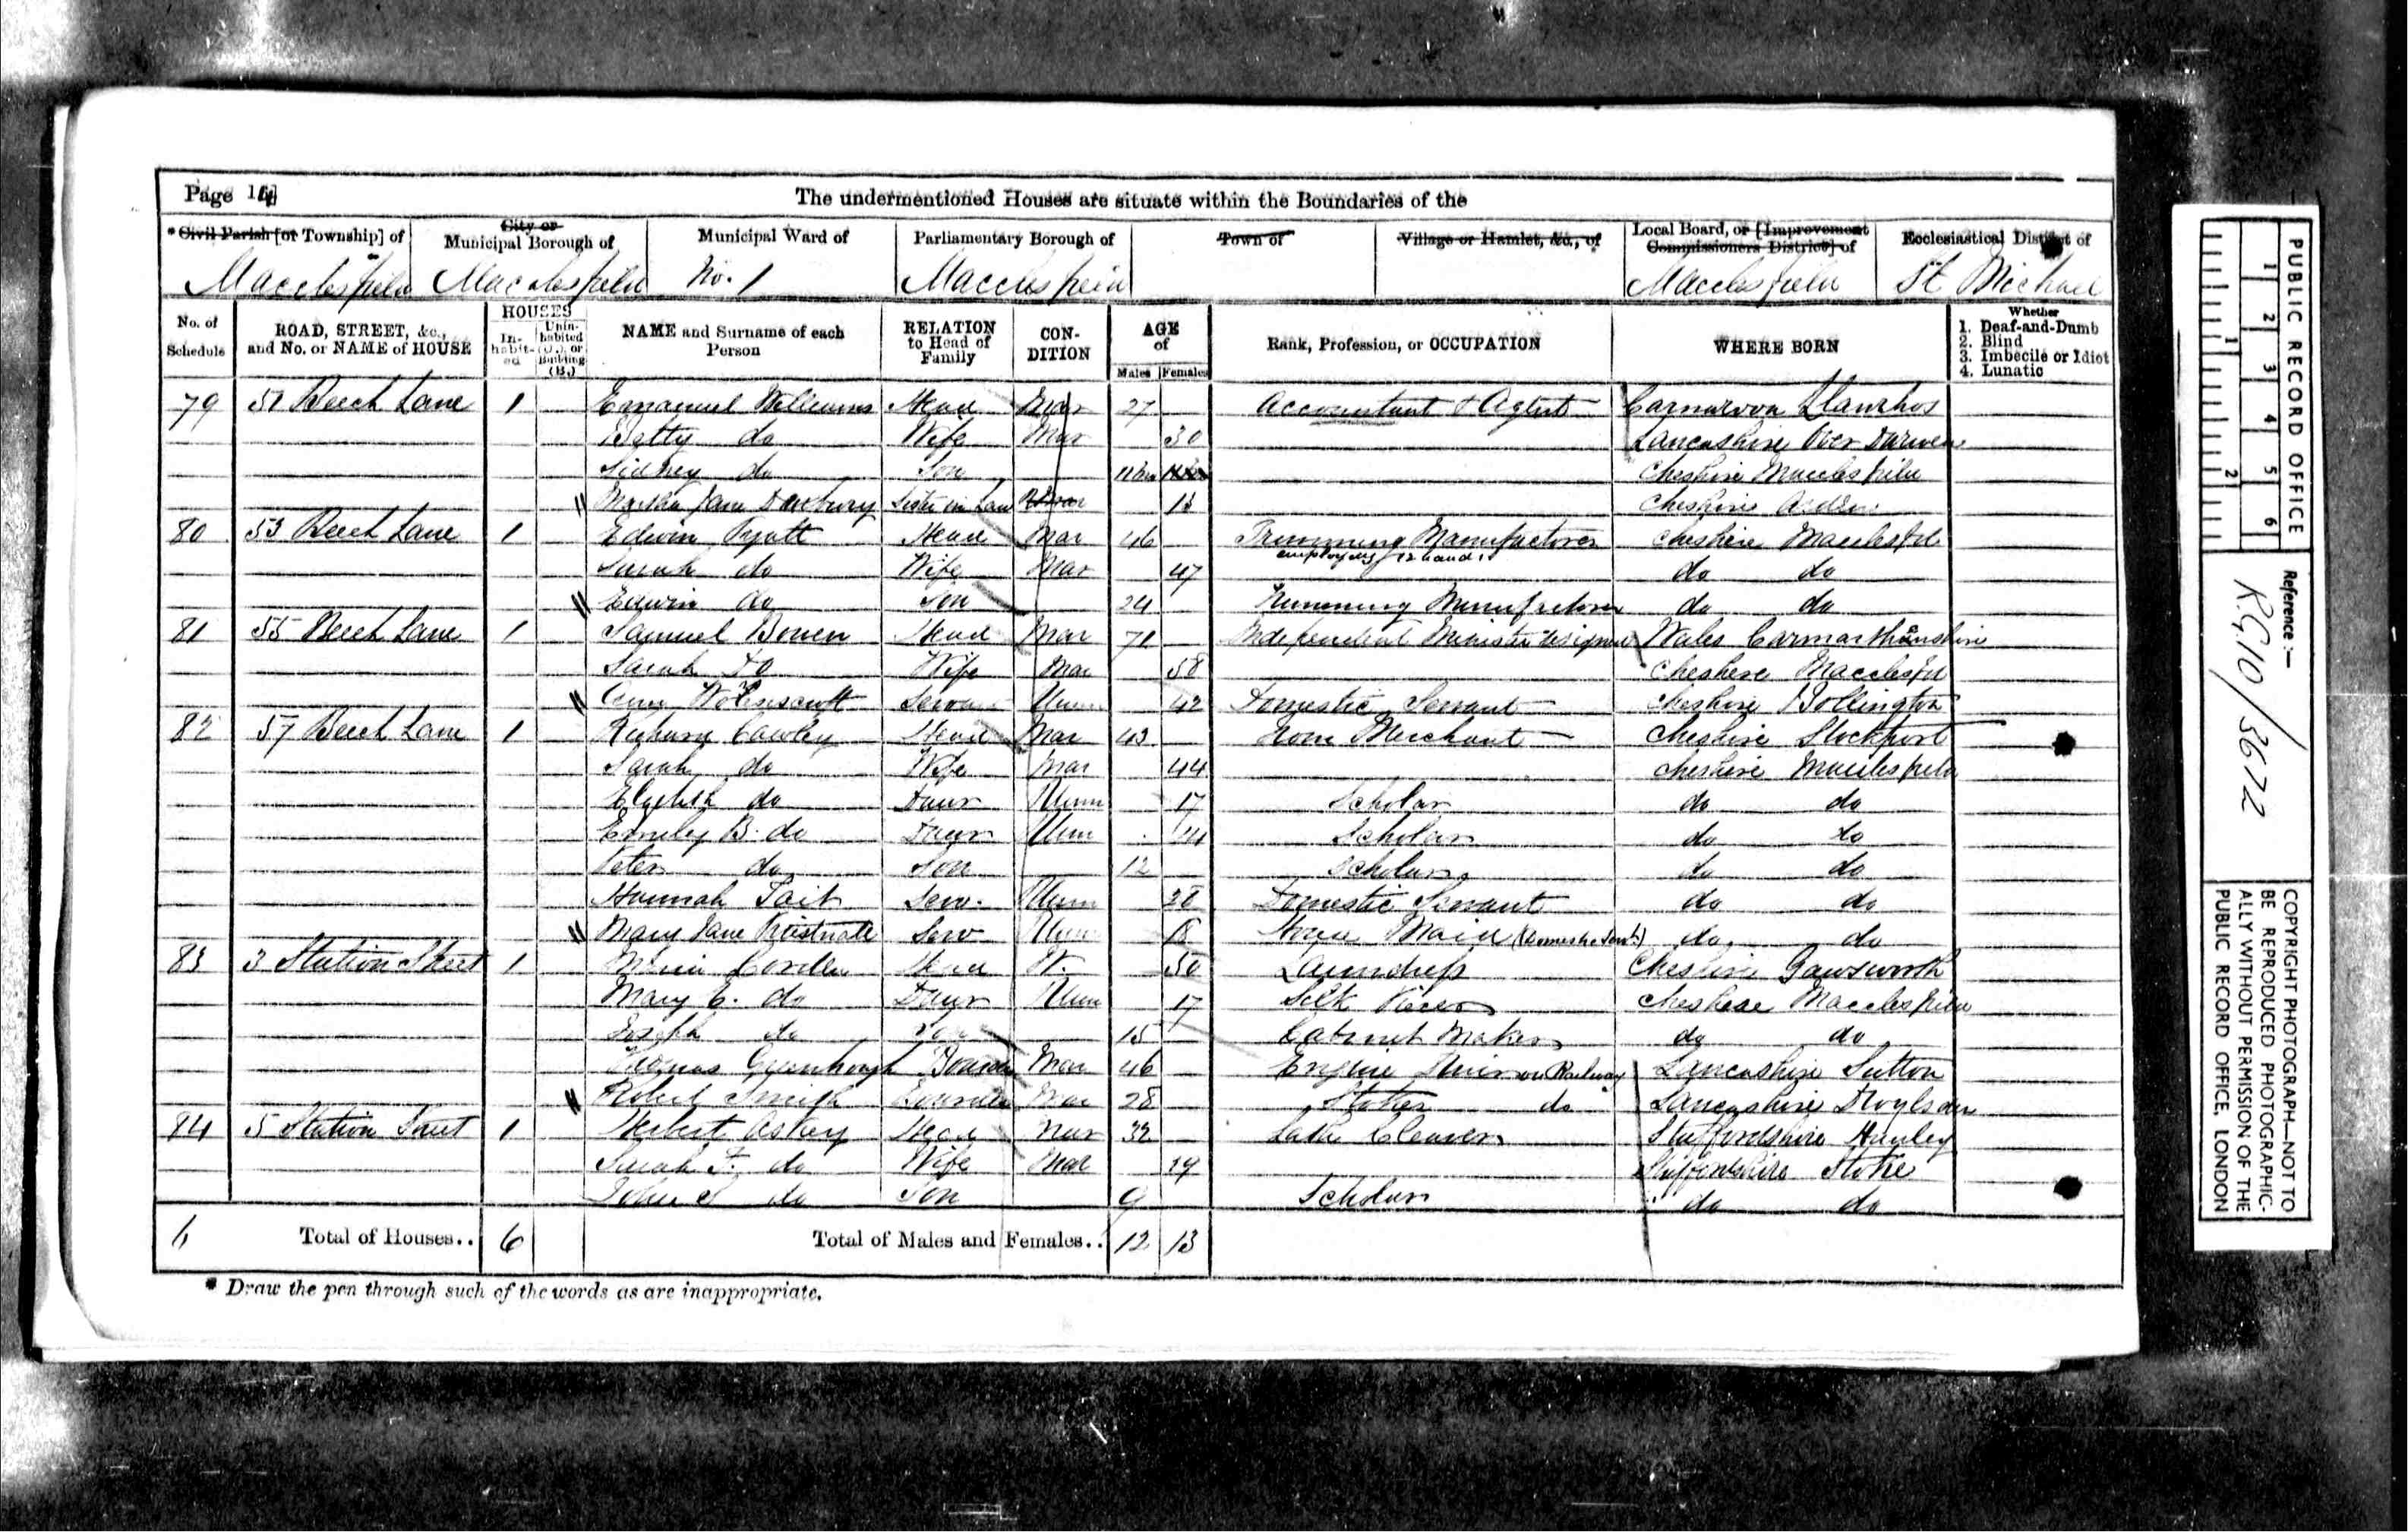 Page 14
The undermentioned Houses are situate within the Boundaries of the
* Civil Parish [or Township] of
City or Municipal Borough of
Municipal Ward of
Parliamentary Borough of
Town of
Village or Hamlet, &c., of
Local Board, or [Improvement Commissioners District] of
Ecclesiastical District of
Macclesfield Macclesfield No. 1 Macclesfield Macclesfield St Michael
No. of Schedule
ROAD, STREET, &c., and No. or NAME of HOUSE
HOUSES
In-habit-ed
Unin-habited (U.), or Building (B.)
NAME and Surname of each Person
RELATION to Head of Family
CON-DITION
AGE of
Males Females
Rank, Profession, or OCCUPATION
WHERE BORN
Whether
1. Deaf-and-Dumb
2. Blind
3. Imbecile or Idiot
4. Lunatic
79 51 Beech Lane 1 Emanuel Williams Head Mar 27 Accountant & Agent Carnarvon
Betty do Wife Mar 30 Lancashire Over Darwen
Sidney do Son 11 Cheshire Macclesfield
Martha Jane Duxbury Sister in Law 13 Cheshire
80 53 Beech Lane 1 Edwin Pyatt Head Mar 46 Trimming Manufacturer employing 12 hands Cheshire Macclesfd
Sarah do Wife Mar 47 do do
Edwin do Son 24 Trimming Manufacturer do do
81 55 Beech Lane 1 Samuel Bowen Head Mar 71 Independent Minister Wales Carmarthenshire
Sarah Do Wife Mar 58 Cheshire Macclesfd
Serva Unm 42 Domestic Servant Cheshire Bollington
82 57 Beech Lane 1 Cawley Head Mar 43 Merchant Cheshire Stockport
Sarah do Wife Mar 44 Cheshire Macclesfield
Elizabeth do Daur Unm 17 Scholar do do
Emily B. do Daur Unm 14 Scholar do do
Peter do Son 12 Scholar do do
Hannah Tait Serv. Unm 20 Domestic Servant do do
Mary Jane Serv Unm 18 Maid (Domestic Servt.) do do
83 3 Station Street 1 Head W. 50 Laundress Cheshire Gawsworth
Mary E. do Daur Unm 17 Silk Cheshire Macclesfield
Joseph do Son 15 Cabinet Maker do do
Thomas Greenhough Boarder Mar 46 Engine Driver on Railway Lancashire Sutton
Robert Smith Boarder Mar 28 Stoker do Lancashire Droylsden
84 5 Station Street 1 Herbert Head Mar 32 Staffordshire Hanley
Sarah F. do Wife Mar Staffordshire Stoke
John S do Son 9 Scholar do do
6 Total of Houses.. 6 Total of Males and Females.. 12 13
* Draw the pen through such of the words as are inappropriate.
PUBLIC RECORD OFFICE
1 2 3 4 5 6
1 2
Reference:—
R.G.10/3672
COPYRIGHT PHOTOGRAPH—NOT TO
BE REPRODUCED PHOTOGRAPHIC-
ALLY WITHOUT PERMISSION OF THE
PUBLIC RECORD OFFICE, LONDON